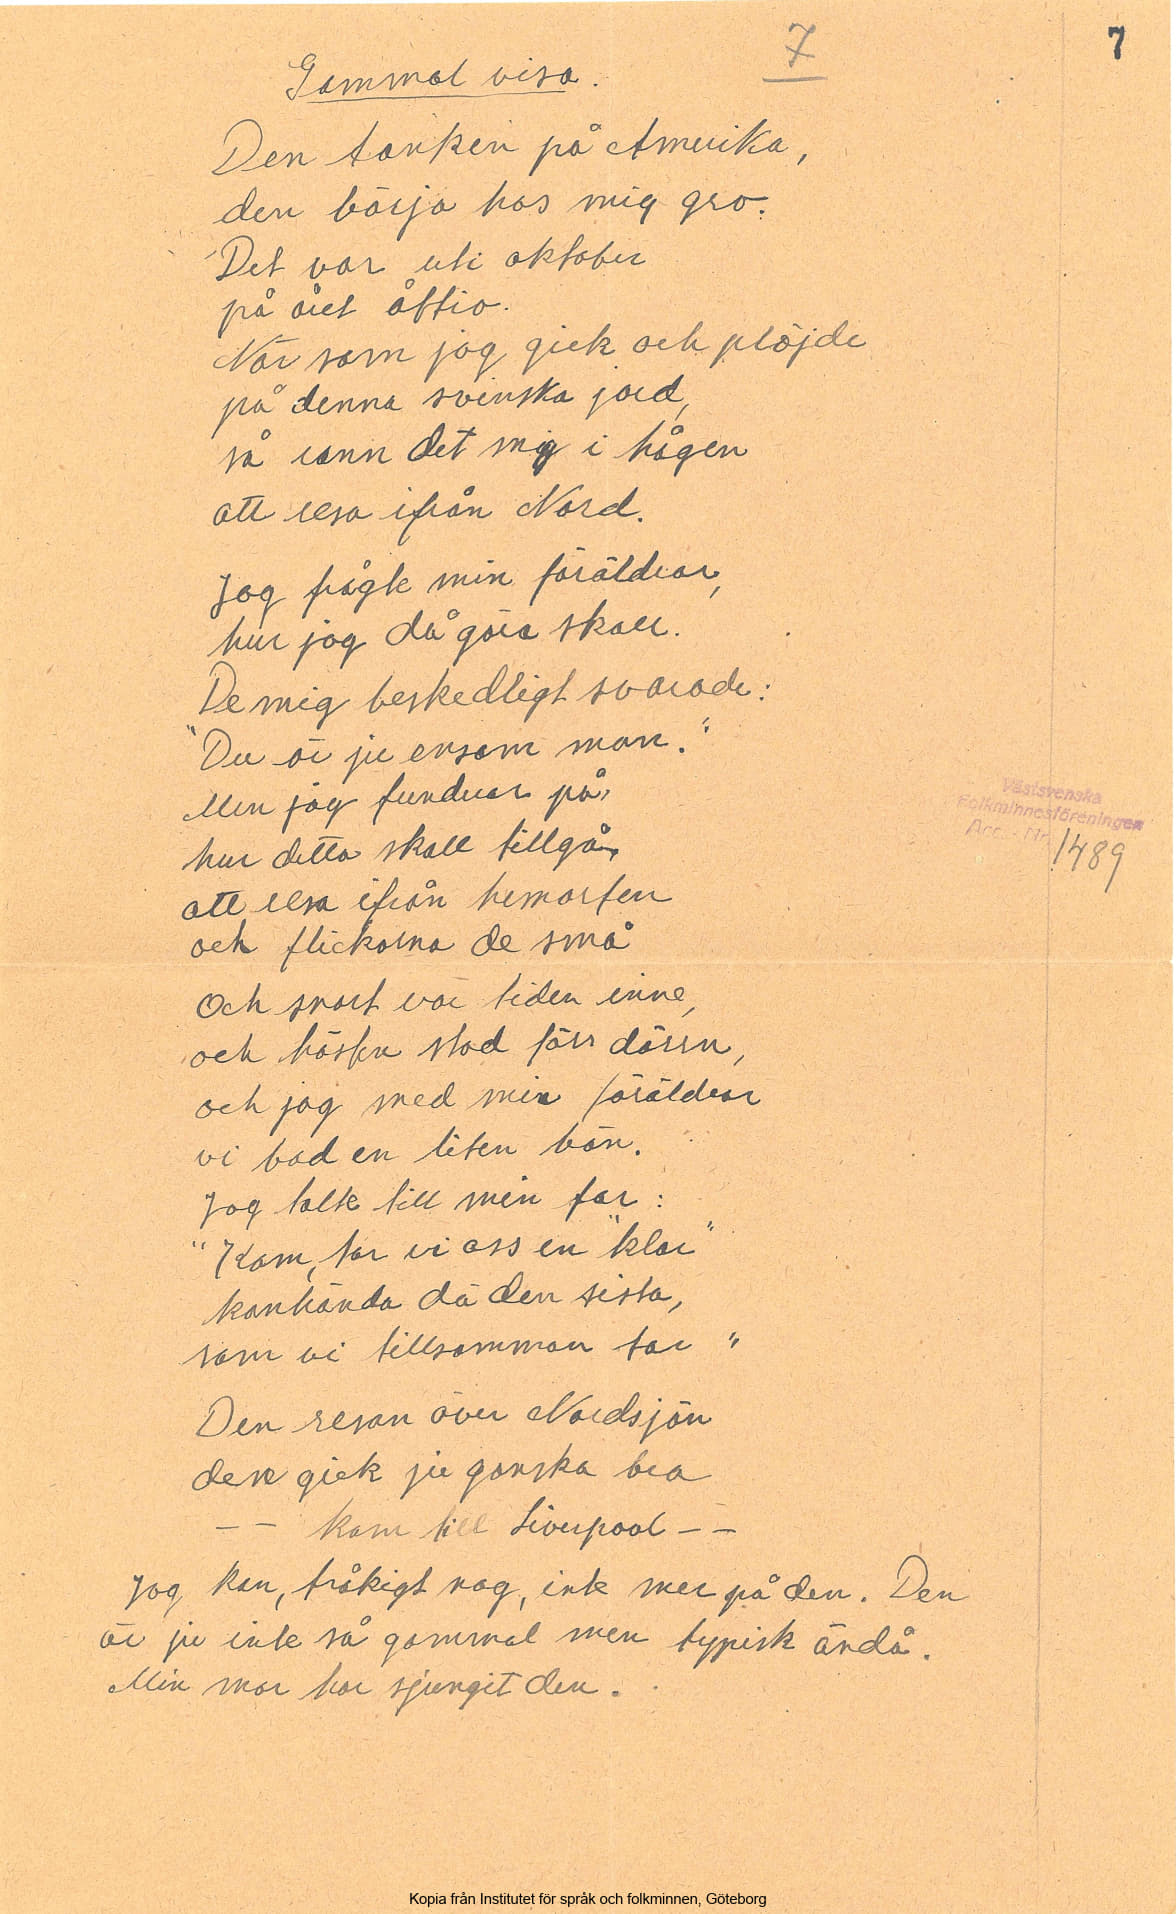 7
7
Gammal visa.
Den tanken på Amerika,
den börja hos mig gro.
Det var uti oktober
på året åttio.
När som jag gick och plöjde
på denna svenska jord,
så rann det mig i hågen
att resa ifrån Nord.
Jag frågte min föräldrar,
hur jag då göra skall.
De mig beskedligt svarade:
"Du är ju ensam man."
Men jag funderar på,
hur detta skall tillgå,
att resa ifrån hemorten
och flickorna de små
Västsvenska
Folkminnesföreningen
Acc.-Nr. 1489
Och snart var tiden inne,
och hösten stod förr dörrn,
och jag med min föräldrar
vi bad en liten bön.
Jag talte till min far:
"Kom, tar vi oss en "klar"
kanhända dä den sista,
som vi tillsamman tar"
Den resan över Nordsjön
den gick ju ganska bra
-- kom till Liverpool --
Jag kan, tråkigt nog, inte mer på den. Den
är ju inte så gammal men typisk ändå.
Min mor har sjungit den.
Kopia från Institutet för språk och folkminnen, Göteborg